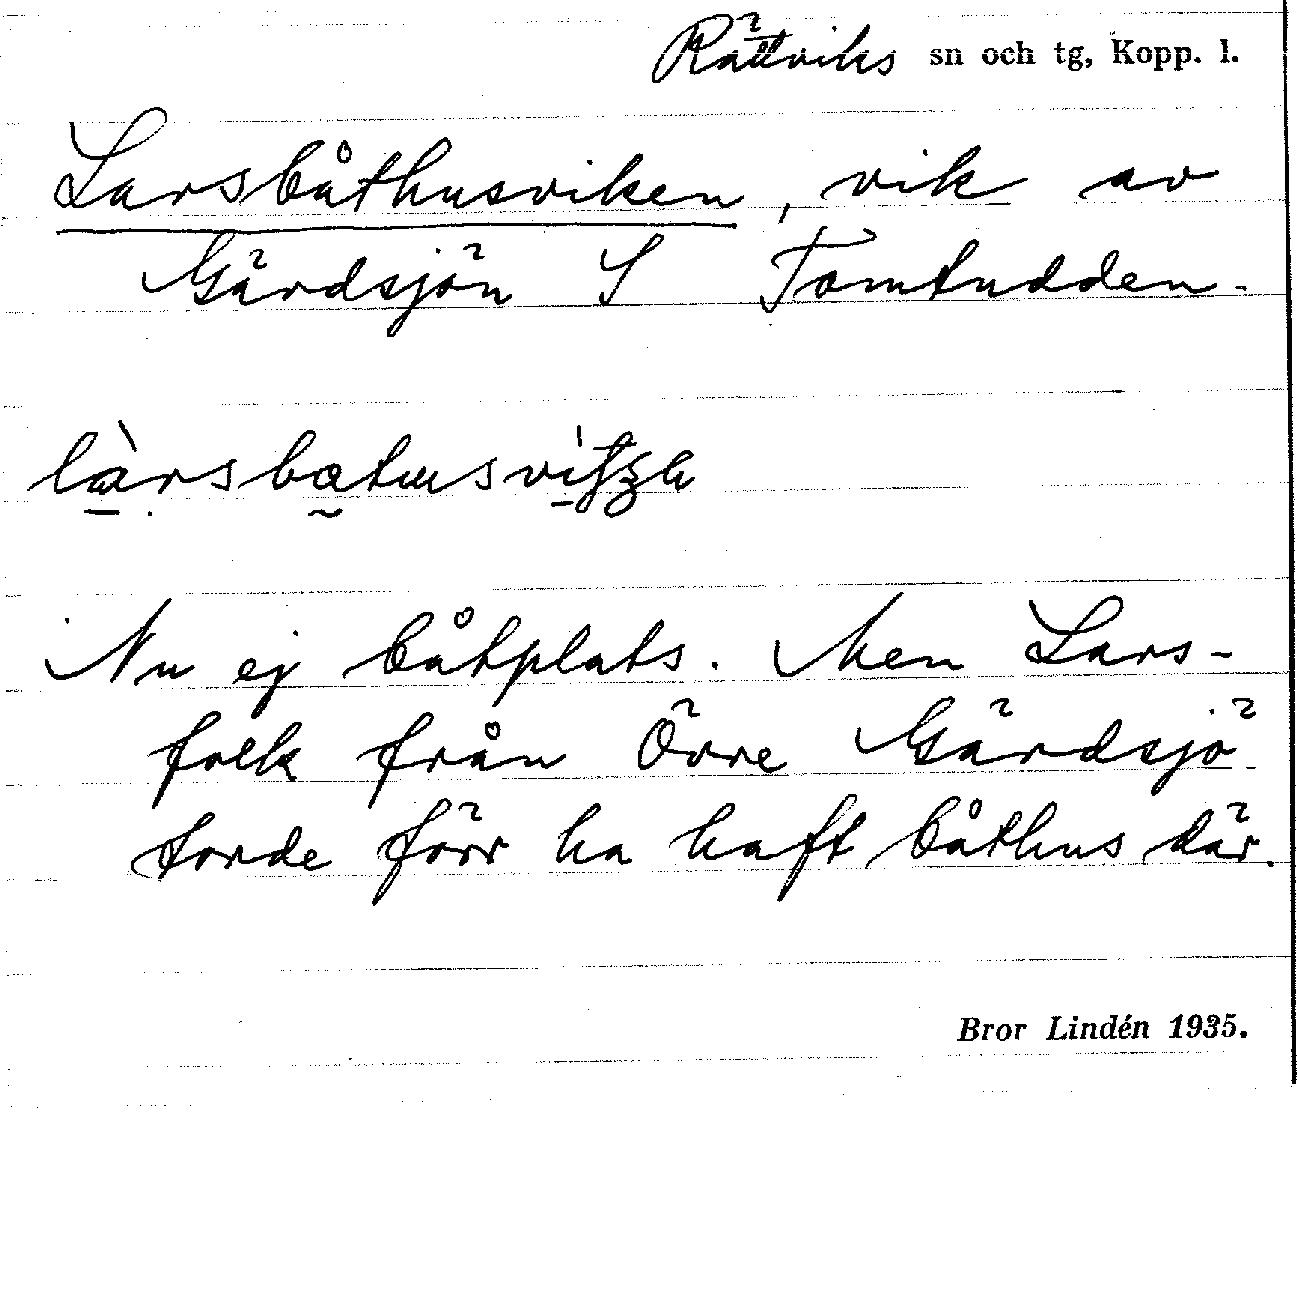 Rättviks sn och tg, Kopp. l.
Larsbåthusviken, vik av
Gärdsjön S Tomtudden.
Nu ej båtplats. Men Lars-
folk från Övre Gärdsjö
torde förr ha haft båthus där.
Bror Lindén 1935.